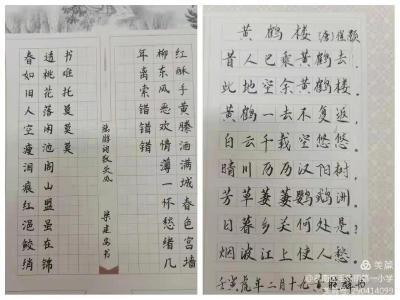 红酥手黄縢酒满城春色宫墙
柳东风恶欢情薄一怀愁绪几
年离索错错错
春如旧人空瘦泪痕红浥鲛绡
透桃花落闲池阁山盟虽在锦
书难托莫莫莫
陆游词钗头凤
梁建安书
黄鹤楼 (唐)崔颢
昔人已乘黄鹤去,
此地空余黄鹤楼.
黄鹤一去不复返,
白云千载空悠悠.
晴川历历汉阳树,
芳草萋萋鹦鹉洲.
日暮乡关何处是?
烟波江上使人愁.
壬寅虎年二月十九
美篇
第一小学
290414099